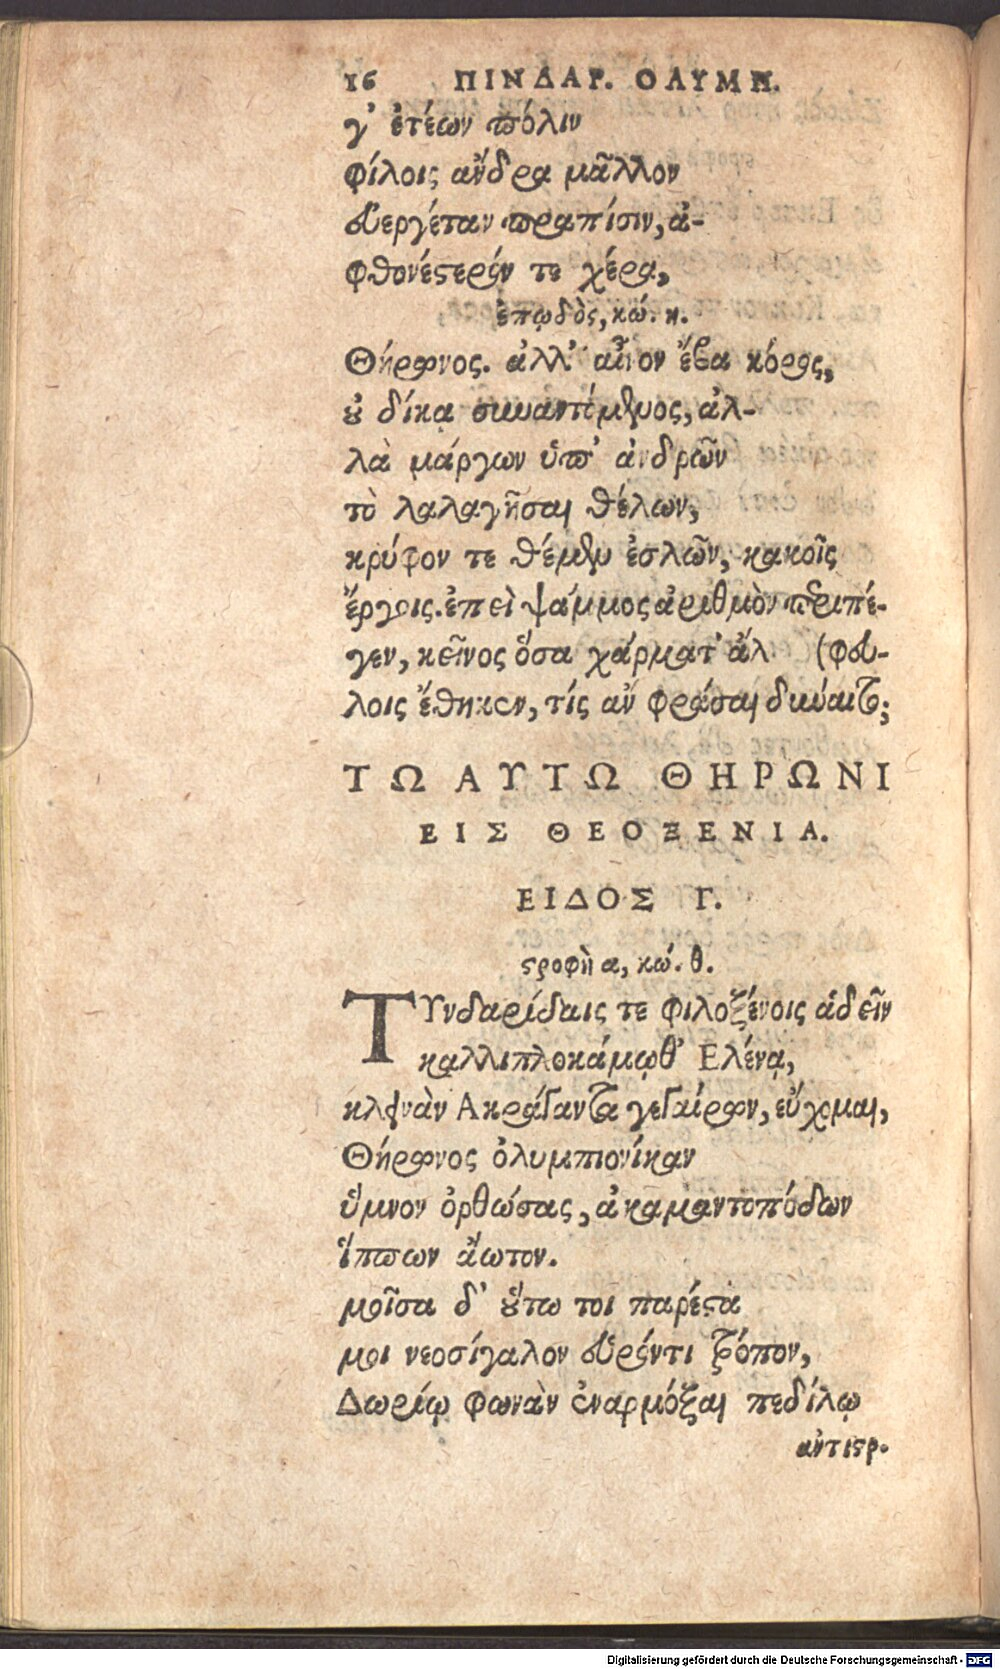 16 ΠΙΝΔΑΡ. ΟΛΥΜΠ.
γ' ἐτέων πόλιν
φίλοις ἄνδρα μᾶλλον
εὐεργέταν πραπίσιν, ἀ-
φθονέστερόν τε χέρα,
ἐπῳδὸς, κώ. η.
Θήρωνος. ἀλλ' αἶνον ἔβα κόρος,
οὐ δίκᾳ συναντόμενος, ἀλ-
λὰ μάργων ὑπ' ἀνδρῶν
τὸ λαλαγῆσαι θέλων,
κρύφον τε θέμεν ἐσλῶν, κακοῖς
ἔργοις. ἐπεὶ ψάμμος ἀριθμὸν περιπέ-
γεν, κεῖνος ὅσα χάρματ' ἄλ (φευ-
λοις ἔθηκεν, τίς ἂν φράσαι δύναιτο;
ΤΩ ΑΥΤΩ ΘΗΡΩΝΙ
ΕΙΣ ΘΕΟΞΕΝΙΑ.
ΕΙΔΟΣ Γ.
στροφὴ α, κώ. θ.
ΤΥνδαρίδαις τε φιλοξένοις ἁδεῖν
καλλιπλοκάμῳθ' Ελένᾳ,
κλεινὰν Ακράγαντα γεγαίρων, εὔχομαι,
Θήρωνος ὀλυμπιονίκαν
ὕμνον ὀρθώσας, ἀκαμαντοπόδων
ἵππων ἄωτον.
μοῖσα δ' οὕτω τοι παρέστα
μοι νεοσίγαλον εὑρόντι τρόπον,
Δωρίῳ φωνὰν ἐναρμόξαι πεδίλῳ
ἀντιστρ.
Digitalisierung gefördert durch die Deutsche Forschungsgemeinschaft - DFG